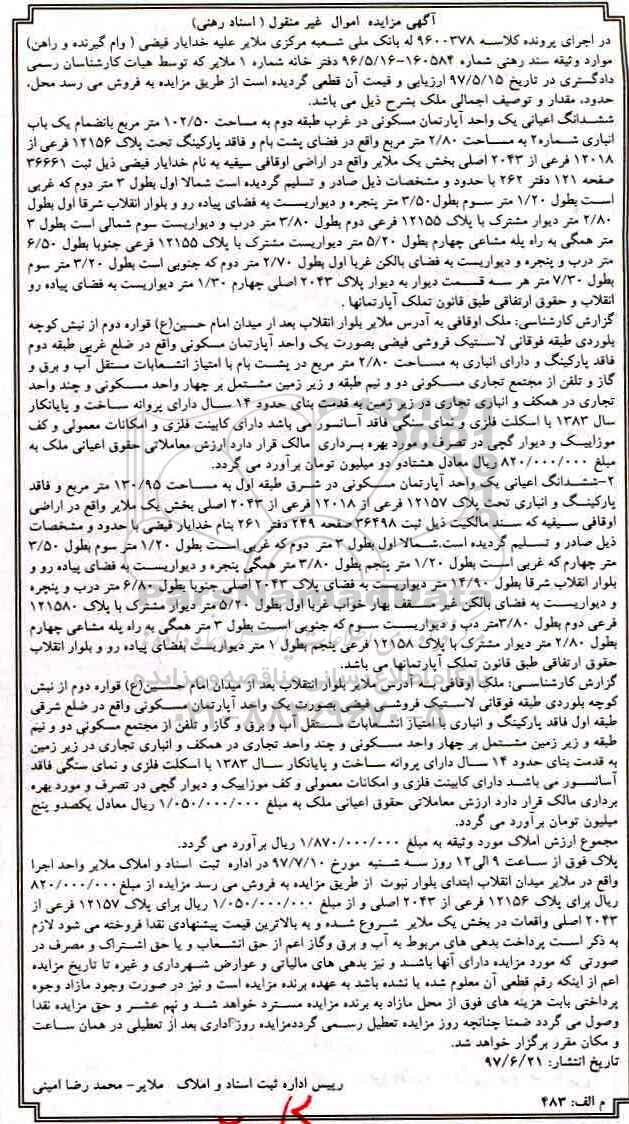 آگهی مزایده اموال غیر منقول ( اسناد رهنی)
در اجرای پرونده کلاسه ۹۶۰۰۳۷۸ له بانک ملی شعبه مرکزی ملایر علیه خدایار فیضی ( وام گیرنده و راهن)
موارد وثیقه سند رهنی شماره ۱۶۰۵۸۴-۹۶/۵/۱۶ دفتر خانه شماره ۱ ملایر که توسط هیات کارشناسان رسمی
دادگستری در تاریخ ۹۷/۵/۱۵ ارزیابی و قیمت آن قطعی گردیده است از طریق مزایده به فروش می رسد محل،
حدود، مقدار و توصیف اجمالی ملک بشرح ذیل می باشد.
ششدانگ اعیانی یک واحد آپارتمان مسکونی در غرب طبقه دوم به مساحت ۱۰۲/۵۰ متر مربع بانضمام یک باب
انباری شماره۲ به مساحت ۲/۸۰ متر مربع واقع در فضای پشت بام و فاقد پارکینگ تحت پلاک ۱۲۱۵۶ فرعی از
۱۲۰۱۸ فرعی از ۲۰۴۳ اصلی بخش یک ملایر واقع در اراضی اوقافی سیفیه به نام خدایار فیضی ذیل ثبت ۳۶۶۶۱
صفحه ۱۲۱ دفتر ۲۶۲ با حدود و مشخصات ذیل صادر و تسلیم گردیده است شمالا اول بطول ۳ متر دوم که غربی
است بطول ۱/۲۰ متر سوم بطول ۳/۵۰ متر پنجره و دیواریست به فضای پیاده رو و بلوار انقلاب شرقا اول بطول
۲/۸۰ متر دیوار مشترک با پلاک ۱۲۱۵۵ فرعی دوم بطول ۳/۸۰ متر درب و دیواریست سوم شمالی است بطول ۳
متر همگی به راه پله مشاعی چهارم بطول ۵/۲۰ متر دیواریست مشترک با پلاک ۱۲۱۵۵ فرعی جنوبا بطول ۶/۵۰
متر درب و پنجره و دیواریست به فضای بالکن غربا اول بطول ۲/۷۰ متر دوم که جنوبی است بطول ۳/۲۰ متر سوم
بطول ۷/۳۰ متر هر سه قسمت دیوار به دیوار پلاک ۲۰۴۳ اصلی چهارم ۱/۳۰ متر دیواریست به فضای پیاده رو
انقلاب و حقوق ارتفاقی طبق قانون تملک آپارتمانها .
گزارش کارشناسی: ملک اوقافی به آدرس ملایر بلوار انقلاب بعد از میدان امام حسین(ع) قواره دوم از نبش کوچه
بلوردی طبقه فوقانی لاستیک فروشی فیضی بصورت یک واحد آپارتمان مسکونی واقع در ضلع غربی طبقه دوم
فاقد پارکینگ و دارای انباری به مساحت ۲/۸۰ متر مربع در پشت بام با امتیاز انشعابات مستقل آب و برق و
گاز و تلفن از مجتمع تجاری مسکونی دو و نیم طبقه و زیر زمین مشتمل بر چهار واحد مسکونی و چند واحد
تجاری در همکف و انباری تجاری در زیرزمین به قدمت بنای حدود ۱۴ سال دارای پروانه ساخت و پایانکار
سال ۱۳۸۳ با اسکلت فلزی و نمای سنگی فاقد آسانسور می باشد دارای کابینت فلزی و امکانات معمولی و کف
موزاییک و دیوار گچی در تصرف و مورد بهره برداری مالک قرار دارد ارزش معاملاتی حقوق اعیانی ملک به
مبلغ ۸۲۰/۰۰۰/۰۰۰ ریال معادل هشتادو دو میلیون تومان برآورد می گردد.
۲-ششدانگ اعیانی یک واحد آپارتمان مسکونی در شرق طبقه اول به مساحت ۱۳۰/۹۵ متر مربع و فاقد
پارکینگ و انباری تحت پلاک ۱۲۱۵۷ فرعی از ۱۲۰۱۸ فرعی از ۲۰۴۳ اصلی بخش یک ملایر واقع در اراضی
اوقافی سیفیه که سند مالکیت ذیل ثبت ۳۶۴۹۸ صفحه ۲۴۹ دفتر ۲۶۱ بنام خدایار فیضی با حدود و مشخصات
ذیل صادر و تسلیم گردیده است.شمالا اول بطول ۳ متر دوم که غربی است بطول ۱/۲۰ متر سوم بطول ۳/۵۰
متر چهارم که غربی است بطول ۱/۲۰ متر پنجم بطول ۳/۸۰ متر همگی پنجره و دیواریست به فضای پیاده رو و
بلوار انقلاب شرقا بطول ۱۴/۹۰ متر دیواریست به فضای پلاک ۲۰۴۳ اصلی جنوبا بطول ۶/۸۰ متر درب و پنجره
و دیواریست به فضای بالکن غیر مسقف بهار خواب غربا اول بطول ۵/۲۰ متر دیوار مشترک با پلاک ۱۲۱۵۸۰
فرعی دوم بطول ۳/۸۰متر درب و دیواریست سوم که جنوبی است بطول ۳ متر همگی به راه پله مشاعی چهارم
بطول ۲/۸۰ متر دیوار مشترک با پلاک ۱۲۱۵۸ فرعی پنجم بطول ۱ متر دیواریست بفضای پیاده رو و بلوار انقلاب
حقوق ارتفاقی طبق قانون تملک آپارتمانها می باشد.
گزارش کارشناسی: ملک اوقافی به آدرس ملایر بلوار انقلاب بعد از میدان امام حسین(ع) قواره دوم از نبش
کوچه بلوردی طبقه فوقانی لاستیک فروشی فیضی بصورت یک واحد آپارتمان مسکونی واقع در ضلع شرقی
طبقه اول فاقد پارکینگ و انباری با امتیاز انشعابات مستقل آب و برق و گاز و تلفن از مجتمع مسکونی دو و نیم
طبقه و زیر زمین مشتمل بر چهار واحد مسکونی و چند واحد تجاری در همکف و انباری تجاری در زیر زمین
به قدمت بنای حدود ۱۴ سال دارای پروانه ساخت و پایانکار سال ۱۳۸۳ با اسکلت فلزی و نمای سنگی فاقد
آسانسور می باشد دارای کابینت فلزی و امکانات معمولی و کف موزاییک و دیوار گچی در تصرف و مورد بهره
برداری مالک قرار دارد ارزش معاملاتی حقوق اعیانی ملک به مبلغ ۱/۰۵۰/۰۰۰/۰۰۰ ریال معادل یکصدو پنج
میلیون تومان برآورد می گردد.
مجموع ارزش املاک مورد وثیقه به مبلغ ۱/۸۷۰/۰۰۰/۰۰۰ ریال برآورد می گردد.
پلاک فوق از ساعت ۹ الی۱۲ روز سه شنبه مورخ ۹۷/۷/۱۰ در اداره ثبت اسناد و املاک ملایر واحد اجرا
واقع در ملایر میدان انقلاب ابتدای بلوار نبوت از طریق مزایده به فروش می رسد مزایده از مبلغ ۸۲۰/۰۰۰/۰۰۰
ریال برای پلاک ۱۲۱۵۶ فرعی از ۲۰۴۳ اصلی و از مبلغ ۱/۰۵۰/۰۰۰/۰۰۰ ریال برای پلاک ۱۲۱۵۷ فرعی از
۲۰۴۳ اصلی واقعات در بخش یک ملایر شروع شده و به بالاترین قیمت پیشنهادی نقدا فروخته می شود لازم
به ذکر است پرداخت بدهی های مربوط به آب و برق وگاز اعم از حق انشعاب و یا حق اشتراک و مصرف در
صورتی که مورد مزایده دارای آنها باشد و نیز بدهی های مالیاتی و عوارض شهرداری و غیره تا تاریخ مزایده
اعم از اینکه رقم قطعی آن معلوم شده یا نشده باشد به عهده برنده مزایده است و نیز در صورت وجود مازاد وجوه
پرداختی بابت هزینه های فوق از محل مازاد به برنده مزایده مسترد خواهد شد و نیم عشر و حق مزایده نقدا
وصول می گردد ضمنا چنانچه روز مزایده تعطیل رسمی گرددمزایده روز اداری بعد از تعطیلی در همان ساعت
و مکان مقرر برگزار خواهد شد.
تاریخ انتشار: ۹۷/۶/۲۱
رییس اداره ثبت اسناد و املاک ملایر- محمد رضا امینی
م الف: ۴۸۳
ParsNamadData